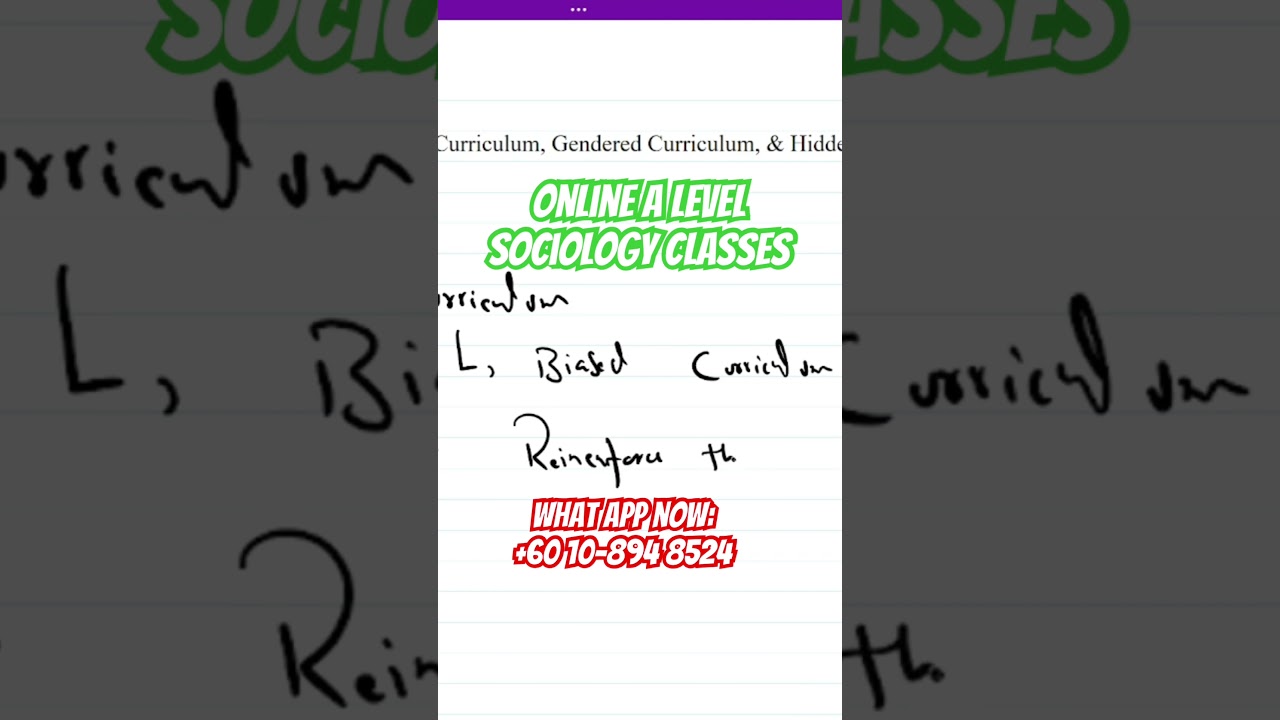 Curriculum, Gendered Curriculum, & Hidde
ONLINE A LEVEL
SOCIOLOGY CLASSES
urriculum
L, Biased Curriculum
Reinenforce th.
WHAT APP NOW:
+60 10-894 8524